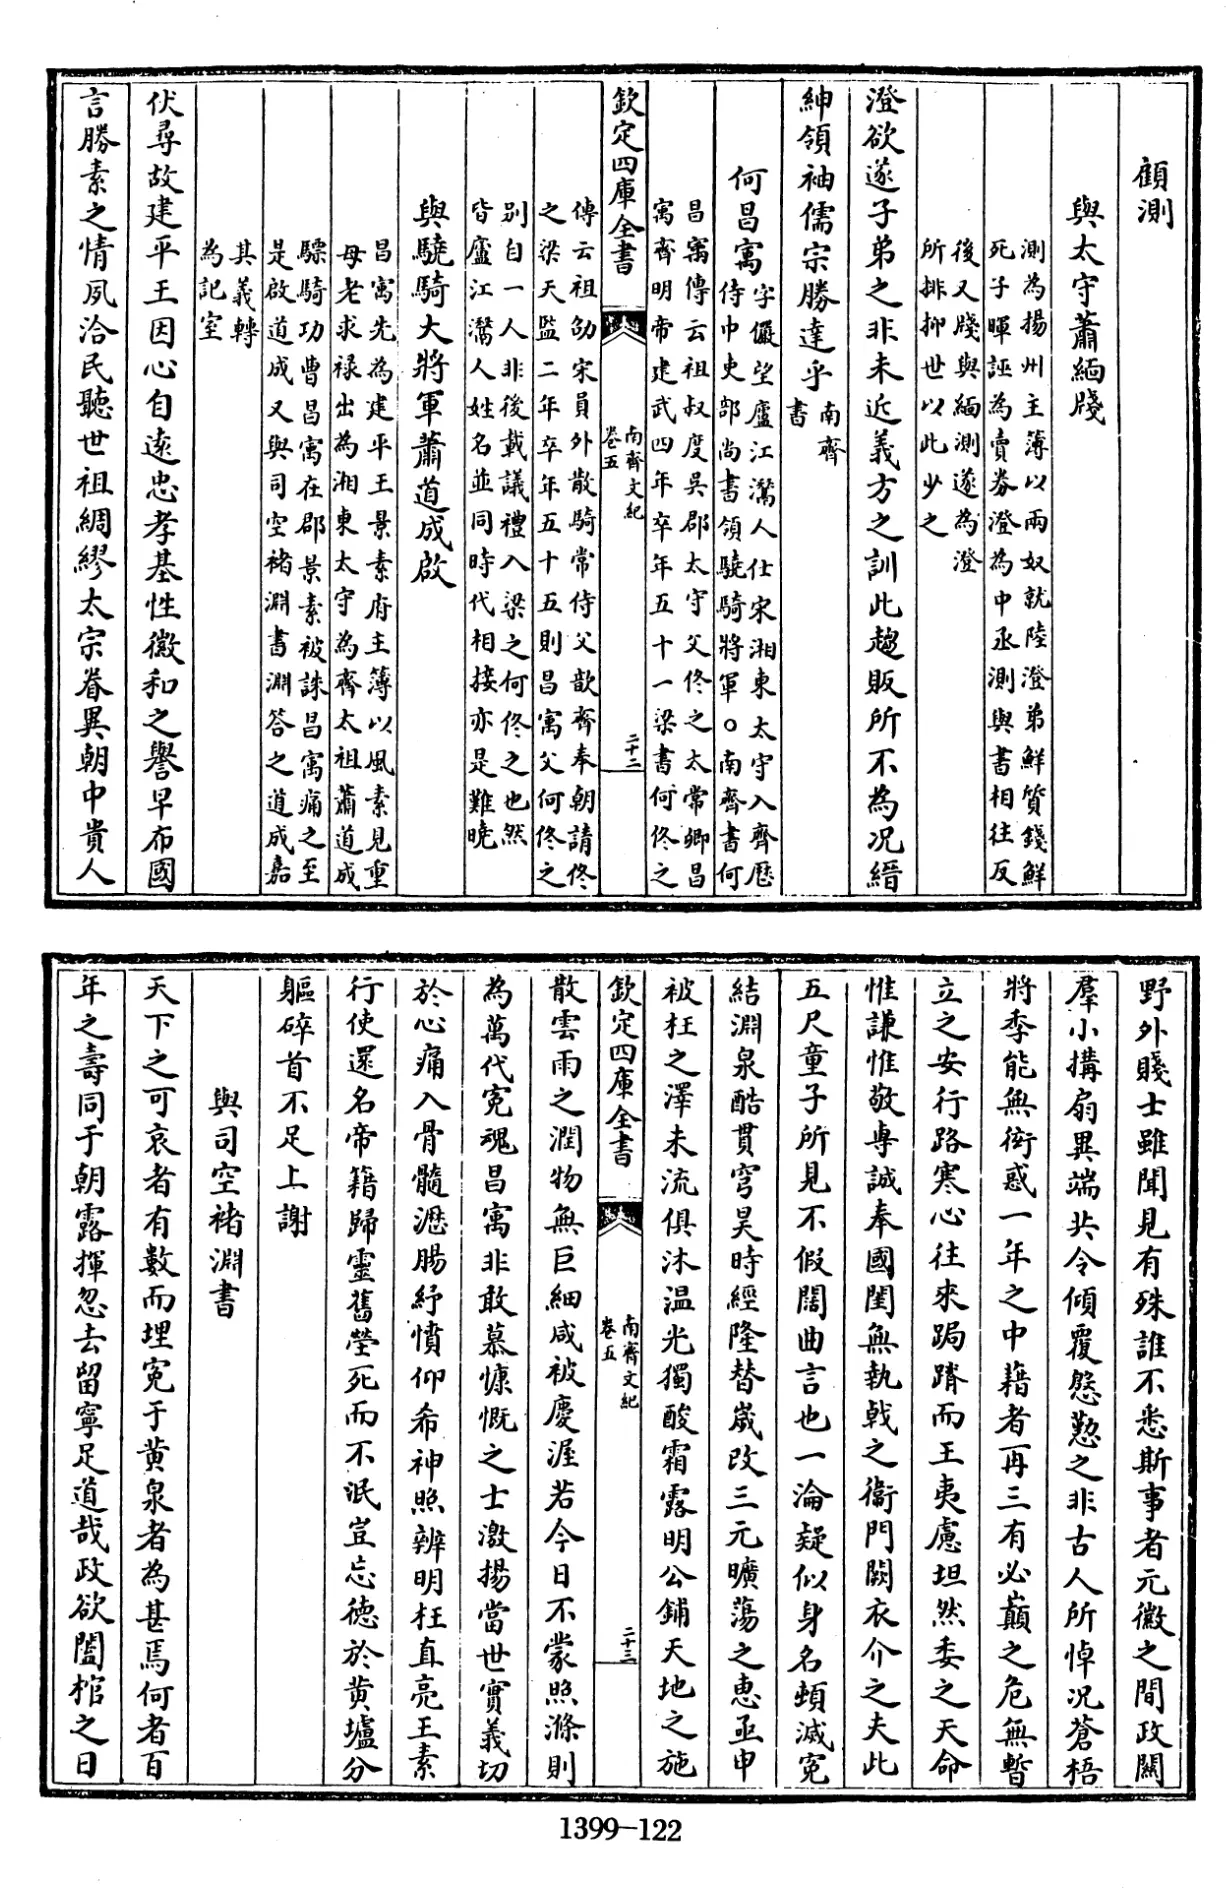 顧測
與太守蕭緬牋
測為揚州主簿以兩奴就陸澄弟鮮質錢鮮
死子暉誣為賣券澄為中丞測與書相往反
後又牋與緬測遂為澄
所排抑世以此少之
澄欲遂子弟之非未近義方之訓此趨販所不為況縉
紳領袖儒宗勝達乎
南齊
書
何昌㝢
字儼望廬江灊人仕宋湘東太守入齊歷
侍中吏部尚書領驍騎將軍○南齊書何
昌㝢傳云祖叔度吳郡太守父佟之太常卿昌
㝢齊明帝建武四年卒年五十一梁書何佟之
欽定四庫全書
南齊文紀
卷五
二十二
傳云祖劭宋員外散騎常侍父歆齊奉朝請佟
之梁天監二年卒年五十五則昌㝢父何佟之
別自一人非後載議禮入梁之何佟之也然
皆廬江灊人姓名並同時代相接亦是難曉
與驍騎大將軍蕭道成啟
昌㝢先為建平王景素府主簿以風素見重
母老求禄出為湘東太守為齊太祖蕭道成
驃騎功曹昌㝢在郡景素被誅昌㝢痛之至
是啟道成又與司空褚淵書淵答之道成嘉
其義轉
為記室
伏尋故建平王因心自遠忠孝基性徽和之譽早布國
言勝素之情夙洽民聽世祖綢繆太宗眷異朝中貴人
野外賤士雖聞見有殊誰不悉斯事者元徽之間政關
羣小搆扇異端共令傾覆慇懃之非古人所悼況蒼梧
將季能無衒惑一年之中藉者再三有必巔之危無暫
立之安行路寒心往來跼蹐而王夷慮坦然委之天命
惟謙惟敬專誠奉國閨無執戟之衛門闕衣介之夫此
五尺童子所見不假闊曲言也一淪疑似身名頓滅冤
結淵泉酷貫穹昊時經隆替嵗改三元曠蕩之惠亟申
被枉之澤未流俱沐温光獨酸霜露明公鋪天地之施
欽定四庫全書
南齊文紀
卷五
二十三
散雲雨之潤物無巨細咸被慶渥若今日不蒙照滌則
為萬代寃魂昌㝢非敢慕慷慨之士激揚當世實義切
於心痛入骨髓瀝腸紓憤仰希神照辨明枉直亮王素
行使還名帝籍歸靈舊塋死而不泯豈忘德於黄壚分
軀碎首不足上謝
與司空褚淵書
天下之可哀者有數而埋寃于黄泉者為甚焉何者百
年之壽同于朝露揮忽去留寧足道哉政欲闔棺之日
1399-122